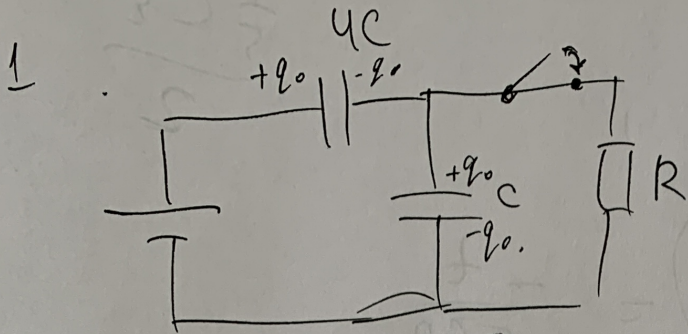 1
4C
+q₀ -q₀
+q₀ C R
-q₀.